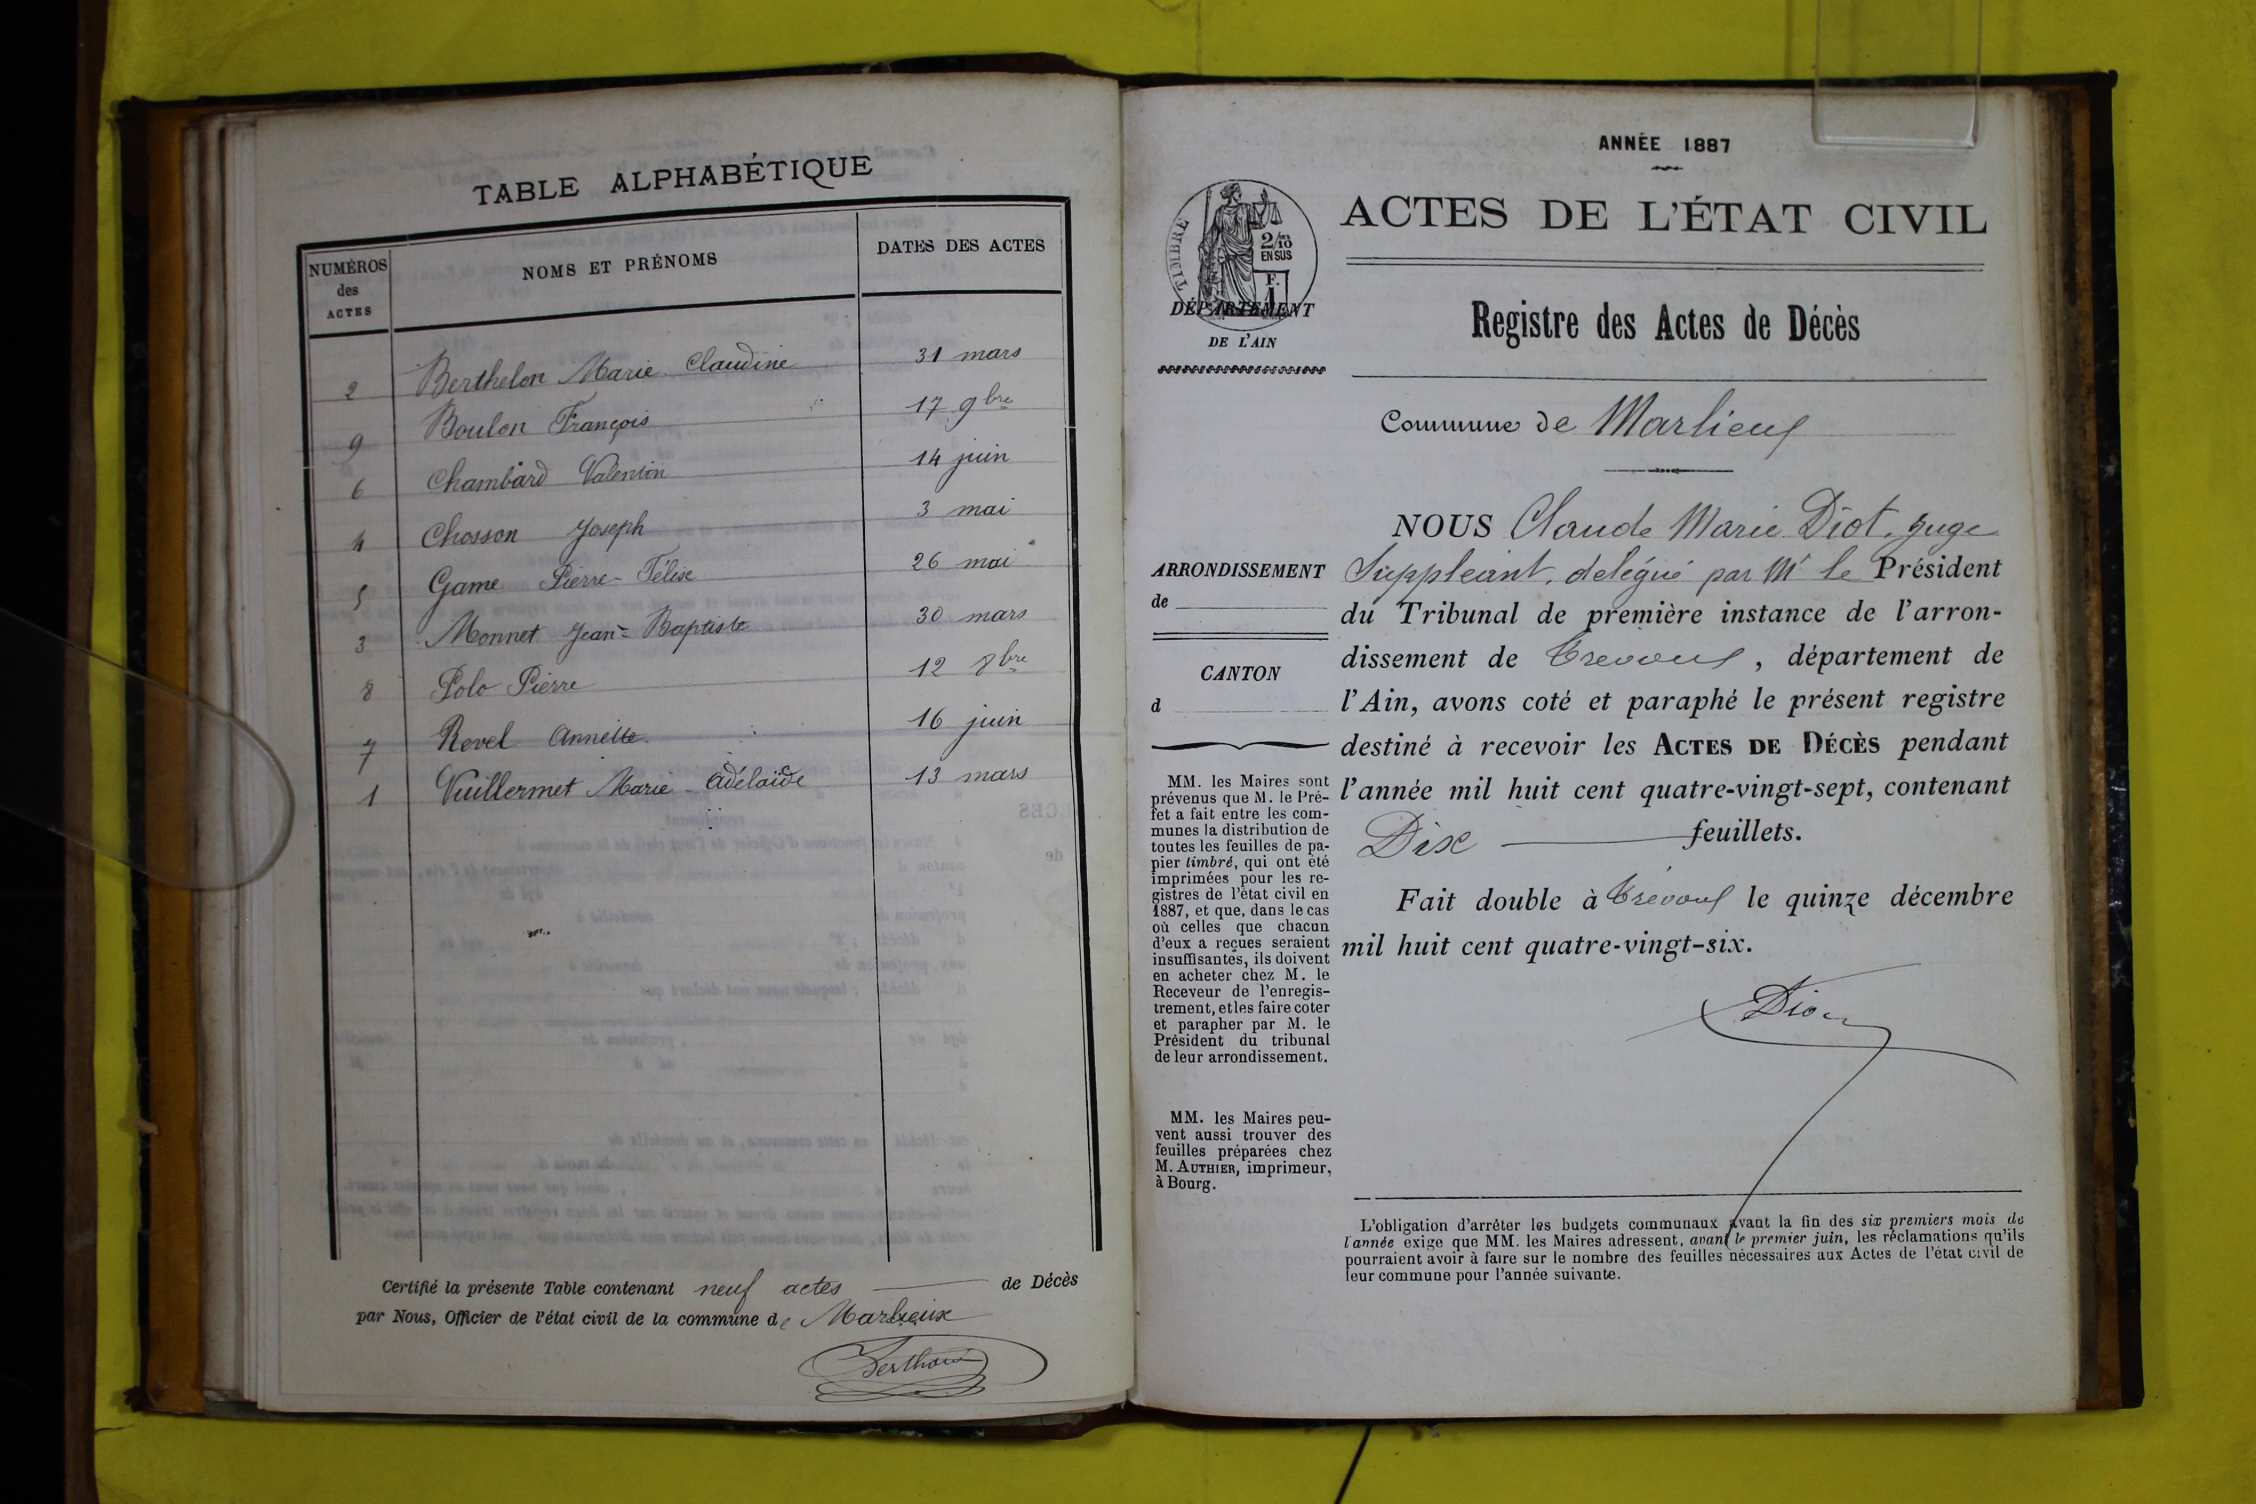 TABLE ALPHABÉTIQUE
NUMÉROS des ACTES
NOMS ET PRÉNOMS
DATES DES ACTES
2 Berthelon Marie Claudine 31 mars
9 Boulon François 17 9bre
6 Chambard Valentin 14 juin
4 Chosson Joseph 3 mai
5 Game Pierre-Félise 26 mai
3 Monnet Jean-Baptiste 30 mars
8 Polo Pierre 12 8bre
7 Revel Annette 16 juin
1 Vuillermet Marie-Adélaïde 13 mars
Certifié la présente Table contenant neuf actes de Décès
par Nous, Officier de l'état civil de la commune de Marlieux
ANNÉE 1887
ACTES DE L'ÉTAT CIVIL
TIMBRE
2/10
EN SUS
F.
1
DÉPARTEMENT
DE L'AIN
Registre des Actes de Décès
Commune de Marlieux
NOUS Claude Marie Diot, Juge
Suppléant, délégué par Mr le Président
du Tribunal de première instance de l'arron-
dissement de Trevoux, département de
l'Ain, avons coté et paraphé le présent registre
destiné à recevoir les ACTES DE DÉCÈS pendant
l'année mil huit cent quatre-vingt-sept, contenant
Dix feuillets.
Fait double à Trévoux le quinze décembre
mil huit cent quatre-vingt-six.
Diot
ARRONDISSEMENT
de
CANTON
d
MM. les Maires sont
prévenus que M. le Pré-
fet a fait entre les com-
munes la distribution de
toutes les feuilles de pa-
pier timbré, qui ont été
imprimées pour les re-
gistres de l'état civil en
1887, et que, dans le cas
où celles que chacun
d'eux a reçues seraient
insuffisantes, ils doivent
en acheter chez M. le
Receveur de l'enregis-
trement, et les faire coter
et parapher par M. le
Président du tribunal
de leur arrondissement.
MM. les Maires peu-
vent aussi trouver des
feuilles préparées chez
M. AUTHIER, imprimeur,
à Bourg.
L'obligation d'arrêter les budgets communaux avant la fin des six premiers mois de
l'année exige que MM. les Maires adressent, avant le premier juin, les réclamations qu'ils
pourraient avoir à faire sur le nombre des feuilles nécessaires aux Actes de l'état civil de
leur commune pour l'année suivante.